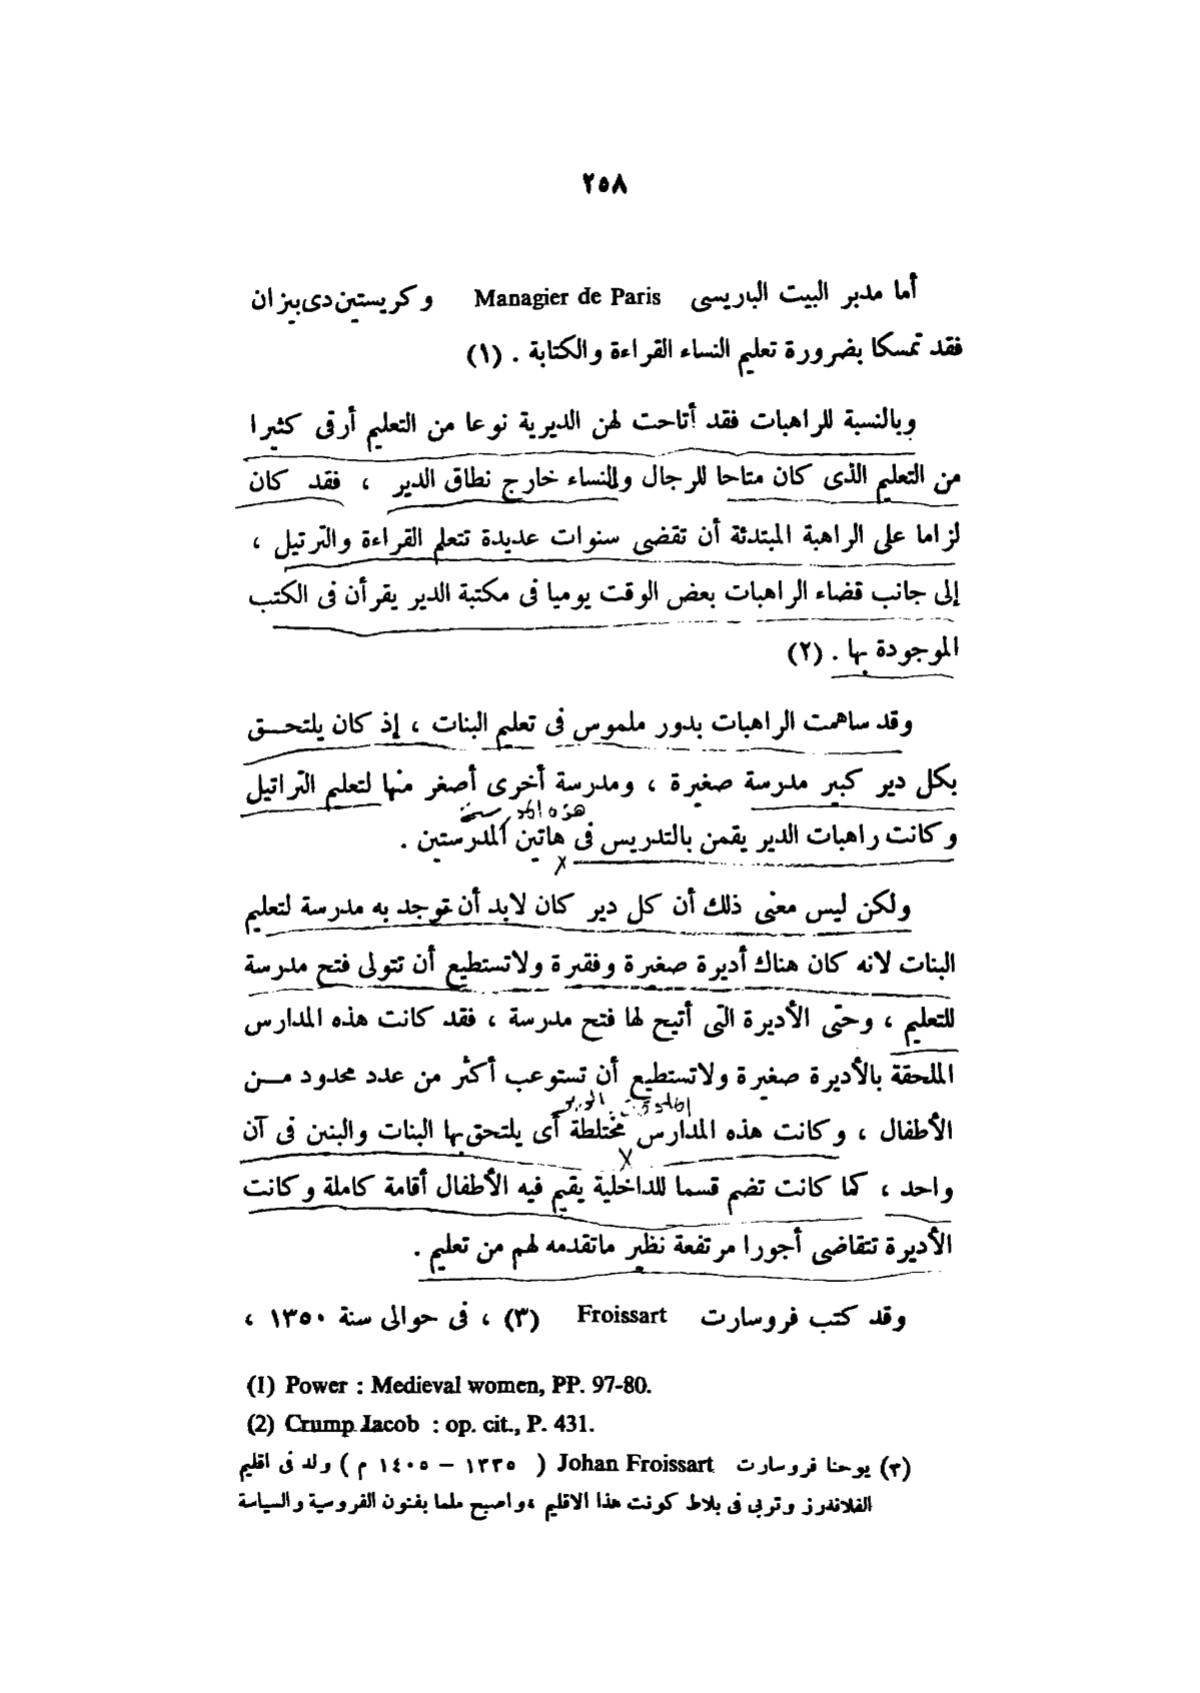 ٢٥٨
أما مدبر البيت الباريسى Managier de Paris وكريستين دى بيزان
فقد تمسكا بضرورة تعليم النساء القراءة والكتابة . (١)
وبالنسبة للراهبات فقد أتاحت لهن الديرية نوعا من التعليم أرقى كثيرا
من التعليم الذى كان متاحا للرجال والنساء خارج نطاق الدير ، فقد كان
لزاما على الراهبة المبتدئة أن تقضى سنوات عديدة تتعلم القراءة والترتيل ،
إلى جانب قضاء الراهبات بعض الوقت يوميا فى مكتبة الدير يقرأن فى الكتب
الموجودة بها . (٢)
وقد ساهمت الراهبات بدور ملموس فى تعليم البنات ، إذ كان يلتحــق
بكل دير كبير مدرسة صغيرة ، ومدرسة أخرى أصغر منها لتعليم التراتيل
هذه
وكانت راهبات الدير يقمن بالتدريس فى هاتين المدرستين .
ولكن ليس معنى ذلك أن كل دير كان لابد أن توجد به مدرسة لتعليم
البنات لانه كان هناك أديرة صغيرة وفقيرة ولاتستطيع أن تتولى فتح مدرسة
للتعليم ، وحتى الأديرة التى أتيح لها فتح مدرسة ، فقد كانت هذه المدارس
الملحقة بالأديرة صغيرة ولاتستطيع أن تستوعب أكثر من عدد محدود مــن
الأطفال ، وكانت هذه المدارس مختلطة أى يلتحق بها البنات والبنين فى آن
واحد ، كما كانت تضم قسما للداخلية يقيم فيه الأطفال أقامة كاملة وكانت
الأديرة تتقاضى أجورا مرتفعة نظير ماتقدمه لهم من تعليم .
وقد كتب فروسارت Froissart (٣) ، فى حوالى سنة ١٣٥٠ ،
(1) Power : Medieval women, PP. 97-80.
(2) Crump Jacob : op. cit., P. 431.
(٣) يوحنا فروسارت Johan Froissart ( ١٣٣٥ – ١٤٠٥ م ) ولد فى اقليم
الفلاندرز وتربى فى بلاط كونت هذا الاقليم ، واصبح ملما بفنون الفروسية والسياسة